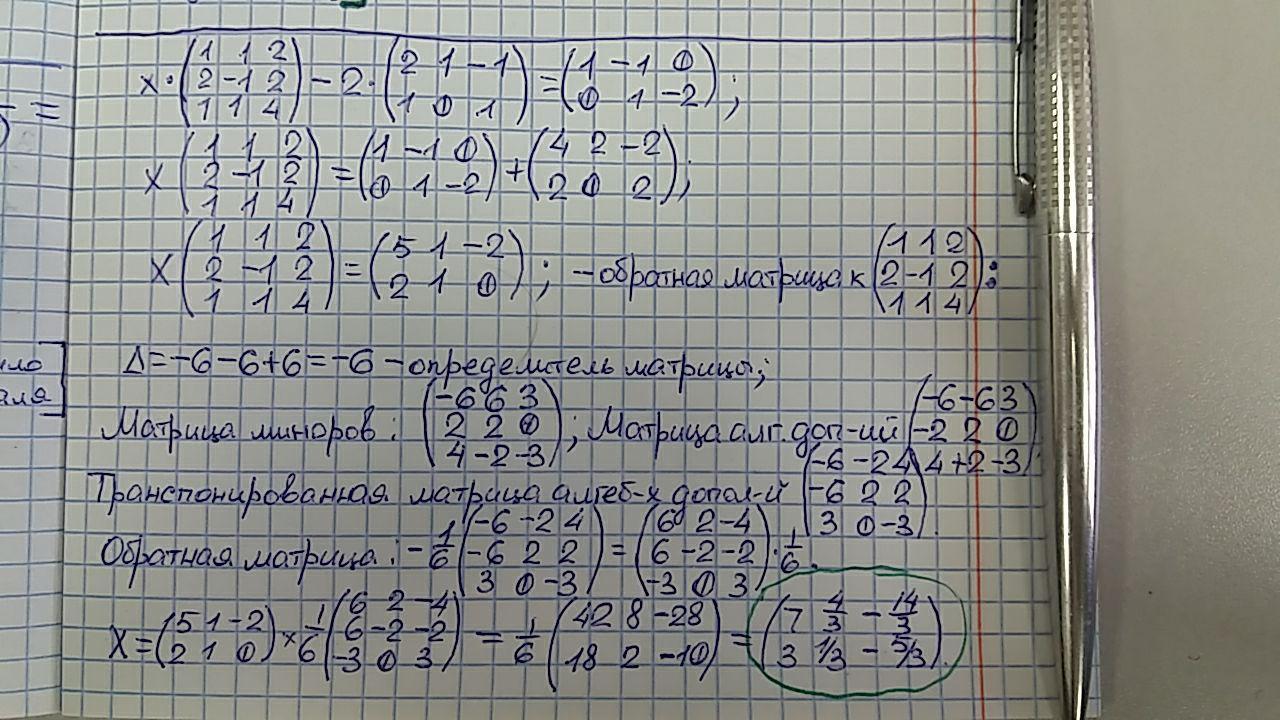 x·(1 1 2 / 2 -1 2 / 1 1 4) - 2·(2 1 -1 / 1 0 1) = (1 -1 0 / 0 1 -2);
x(1 1 2 / 2 -1 2 / 1 1 4) = (1 -1 0 / 0 1 -2) + (4 2 -2 / 2 0 2);
X(1 1 2 / 2 -1 2 / 1 1 4) = (5 1 -2 / 2 1 0); - обратная матрица к (1 1 2 / 2 -1 2 / 1 1 4):
Δ = -6 -6 + 6 = -6 - определитель матрицы;
Матрица миноров: (-6 6 3 / 2 2 0 / 4 -2 -3); Матрица алг. доп-ий (-6 -6 3 / -2 2 0 / 4 +2 -3).
Транспонированная матрица алгеб-х допол-й (-6 -2 4 / -6 2 2 / 3 0 -3).
Обратная матрица: -1/6 (-6 -2 4 / -6 2 2 / 3 0 -3) = (6 2 -4 / 6 -2 -2 / -3 0 3)·1/6.
X = (5 1 -2 / 2 1 0) × 1/6 (6 2 -4 / 6 -2 -2 / -3 0 3) = 1/6 (42 8 -28 / 18 2 -10) = (7 4/3 -14/3 / 3 1/3 -5/3).